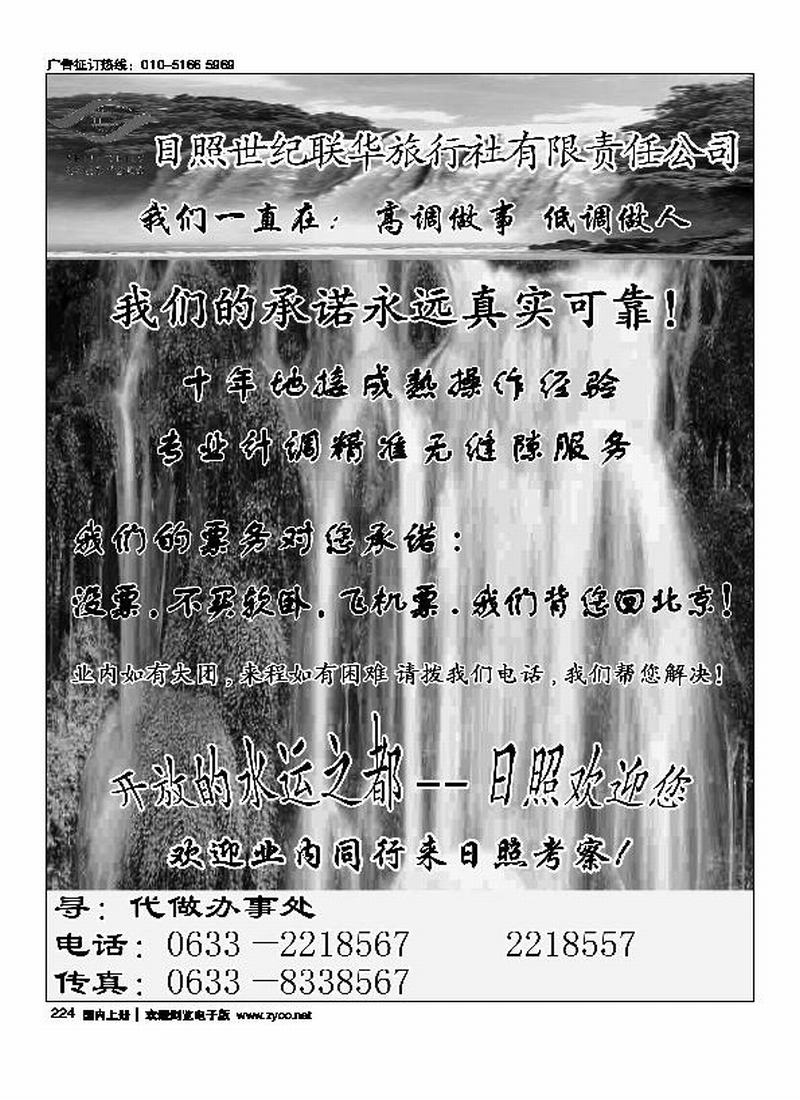 广告征订热线：010-5166 5969
日照世纪联华旅行社有限责任公司
我们一直在：高调做事 低调做人
我们的承诺永远真实可靠！
十年地接成熟操作经验
专业计调精准无缝隙服务
我们的票务对您承诺：
没票．不买软卧．飞机票．我们背您回北京！
业内如有大团，来程如有困难 请拨我们电话，我们帮您解决！
开放的水运之都--日照欢迎您
欢迎业内同行来日照考察！
寻：代做办事处
电话：0633－2218567 2218557
传真：0633－8338567
224 国内上册 | 欢迎浏览电子版 www.zyco.net